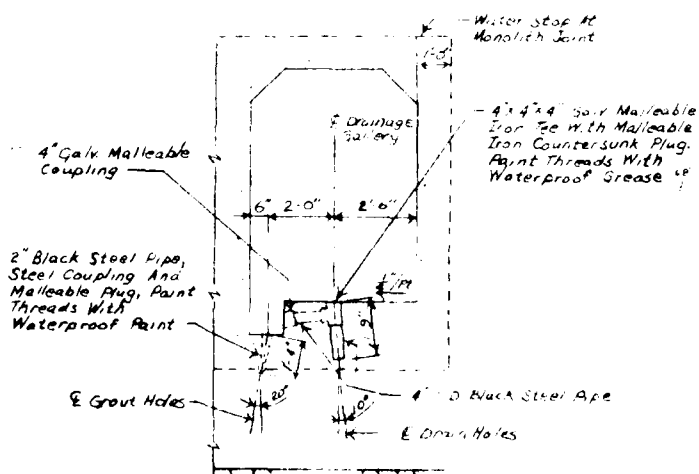 Water Stop At
Monolith Joint
℄ Drainage
Gallery
4"x4"x4" Galv Malleable
Iron Tee With Malleable
Iron Countersunk Plug.
Paint Threads With
Waterproof Grease
4" Galv. Malleable
Coupling
6" 2'-0" 2'-6"
2" Black Steel Pipe,
Steel Coupling And
Malleable Plug, Paint
Threads With
Waterproof Paint
℄ Grout Holes
20°
10°
4" Black Steel Pipe
℄ Drain Holes